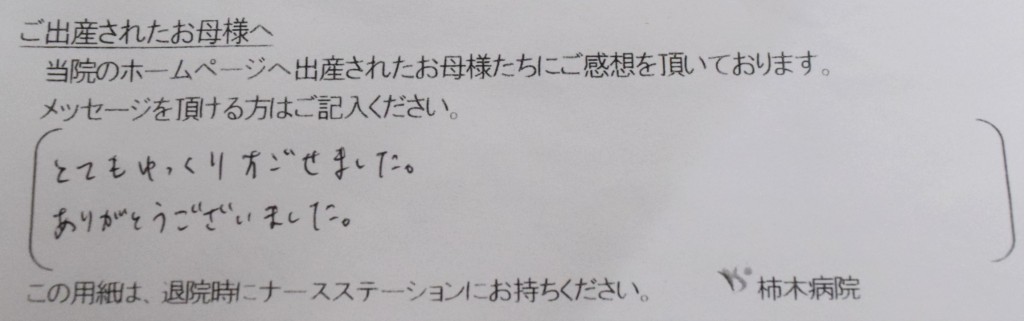 ご出産されたお母様へ
当院のホームページへ出産されたお母様たちにご感想を頂いております。
メッセージを頂ける方はご記入ください。
とてもゆっくりすごせました。
ありがとうございました。
この用紙は、退院時にナースステーションにお持ちください。 柿木病院